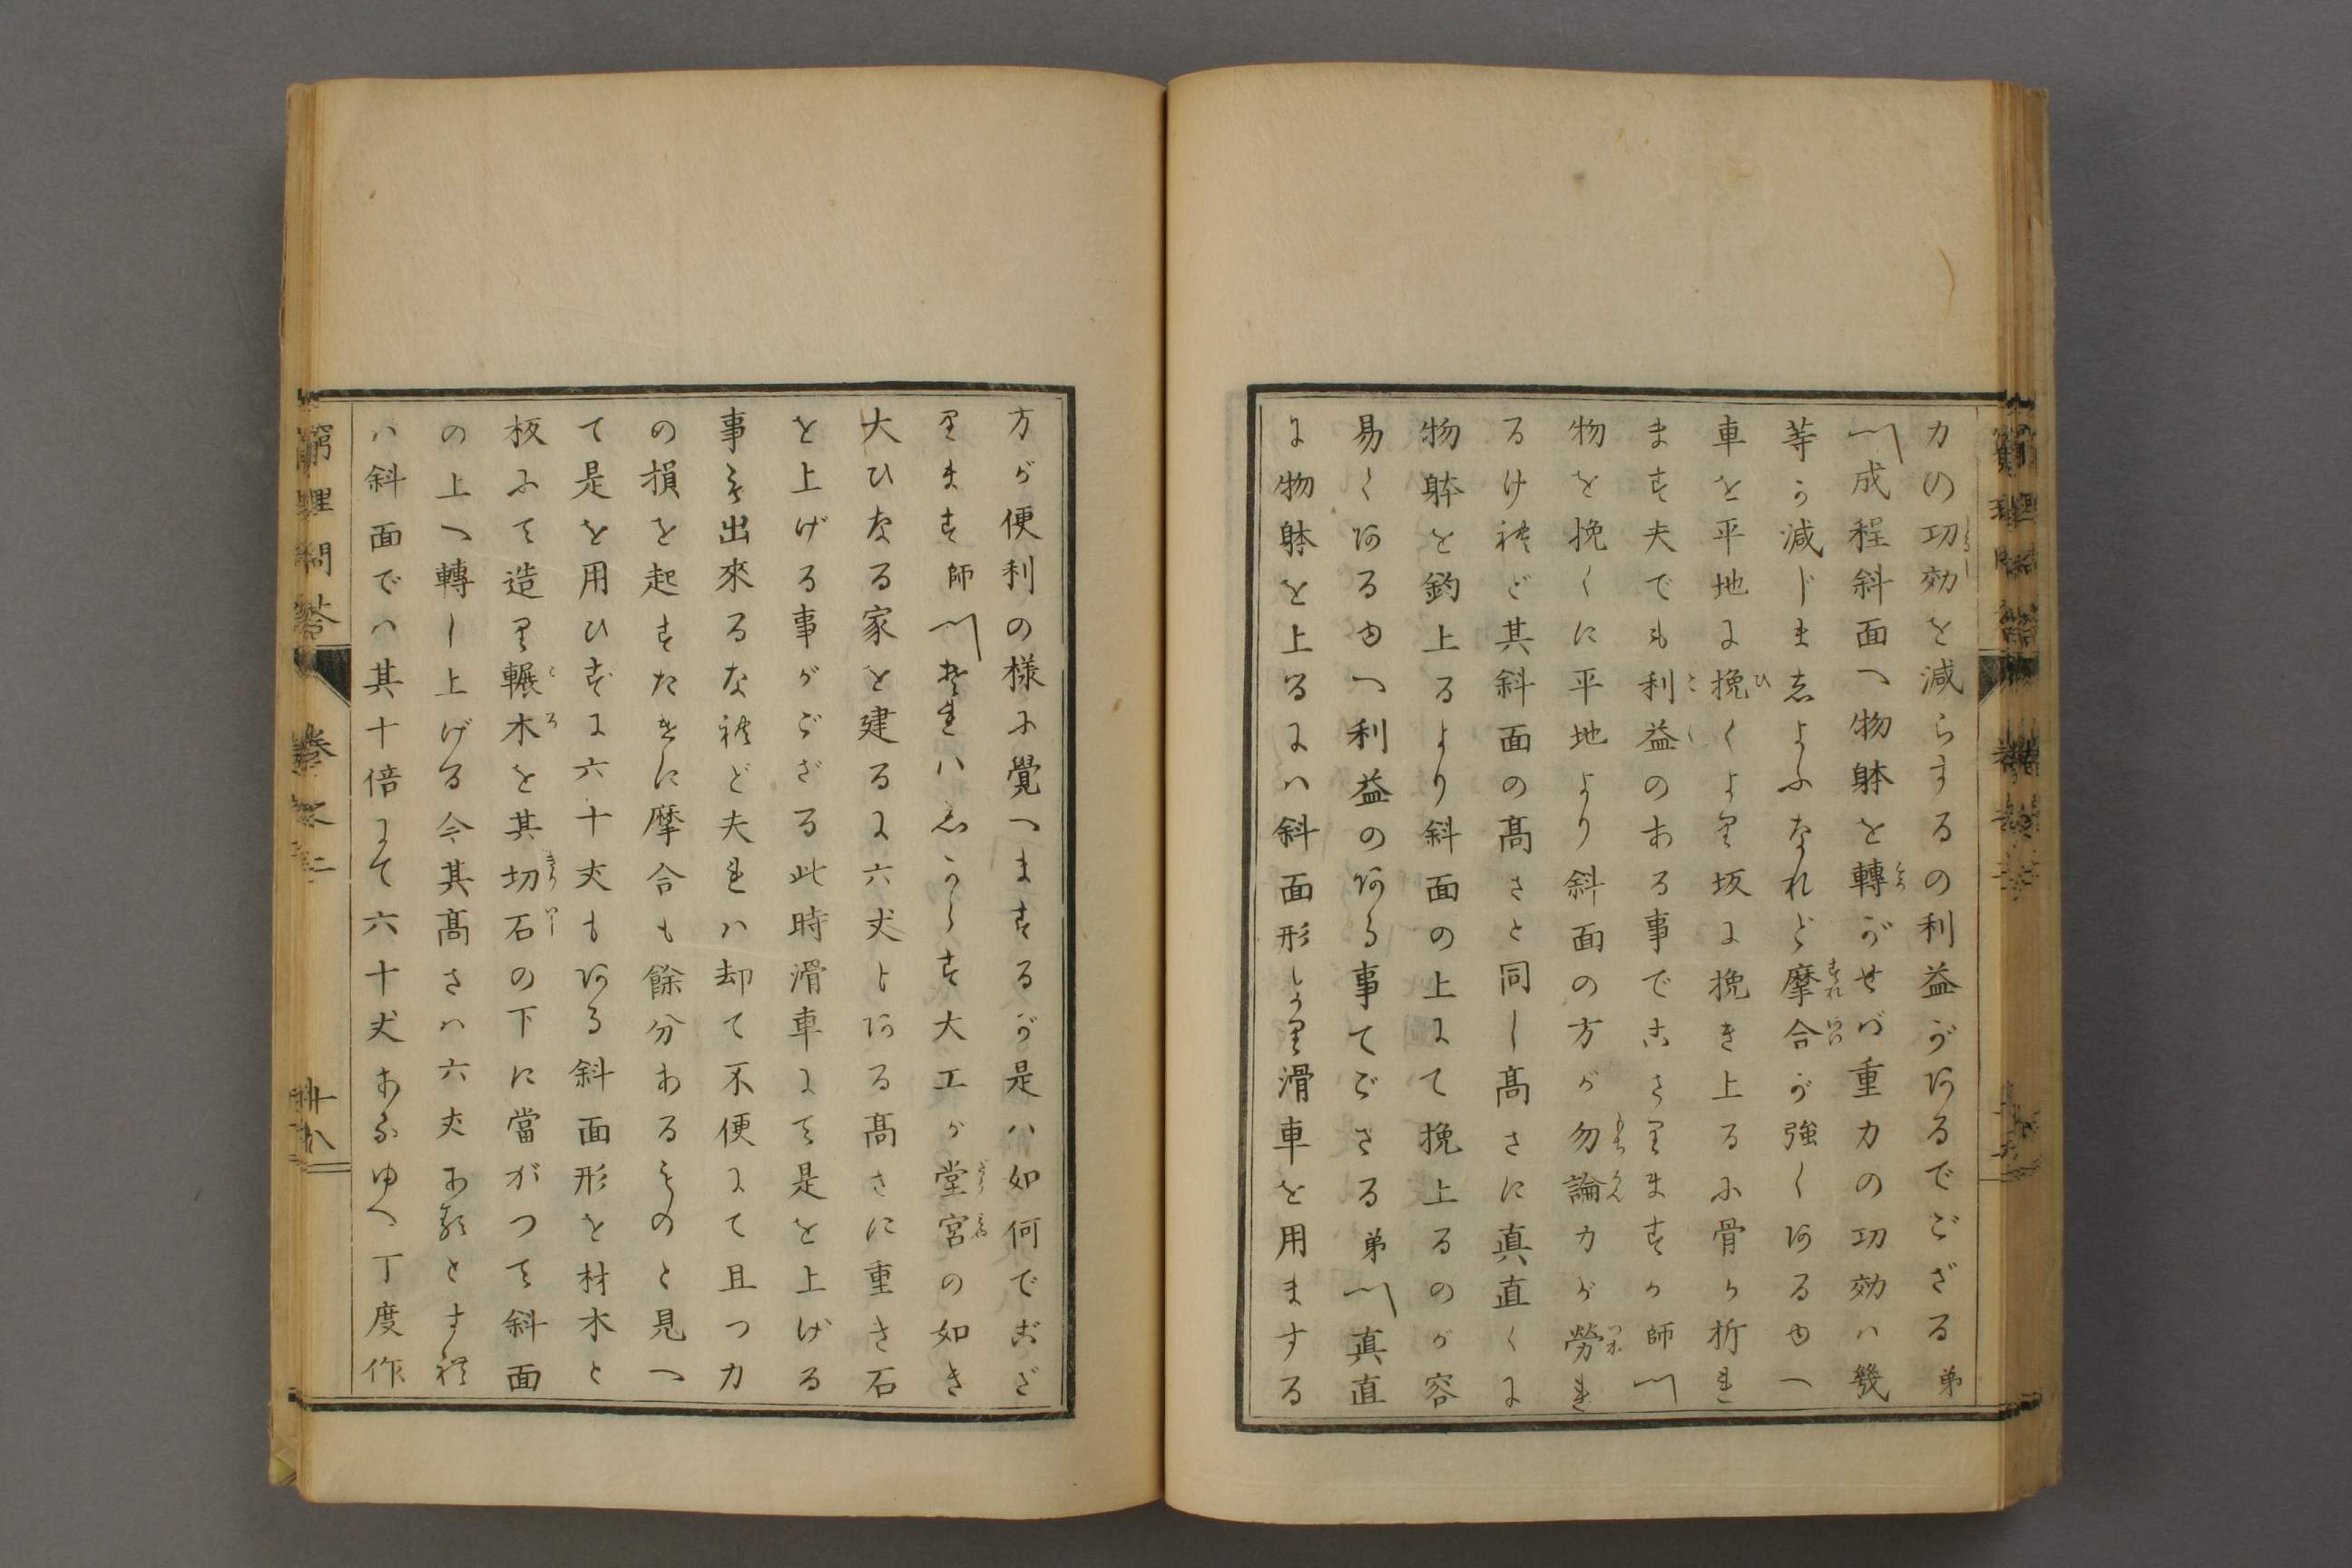 力の功効を減らするの利益があるでござる弟
〽成程斜面へ物躰を轉がせば重力の功効ハ幾
等か減じましよふなれど摩合が強くあるゆへ
車を平地に挽くより坂に挽き上るふ骨か折れ
ます夫でも利益のある事でござりますか師〽
物を挽くに平地より斜面の方が勿論力が勞れ
るけれど其斜面の髙さと同し髙さに真直くに
物躰を釣上るより斜面の上にて挽上るのが容
易くあるゆへ利益のある事てござる弟〽真直
に物躰を上るにハ斜面形しかり滑車を用まする
方が便利の様ふ覺へまするが是ハ如何でござ
ります師〽それハしからす大工が堂宮の如き
大ひなる家を建るに六丈もある髙さに重き石
を上げる事がござる此時滑車にて是を上げる
事も出來るなれど夫れハ却て不便にて且つ力
の損を起すたけに摩合も餘分あるものと見へ
て是を用ひずに六十丈もある斜面形を材木と
板ふて造り轆木を其切石の下に當がつて斜面
の上へ轉し上げる今其髙さハ六丈あるとすれ
ハ斜面でハ其十倍にて六十丈あるゆへ丁度作
窮理問答
卷之二
卅八